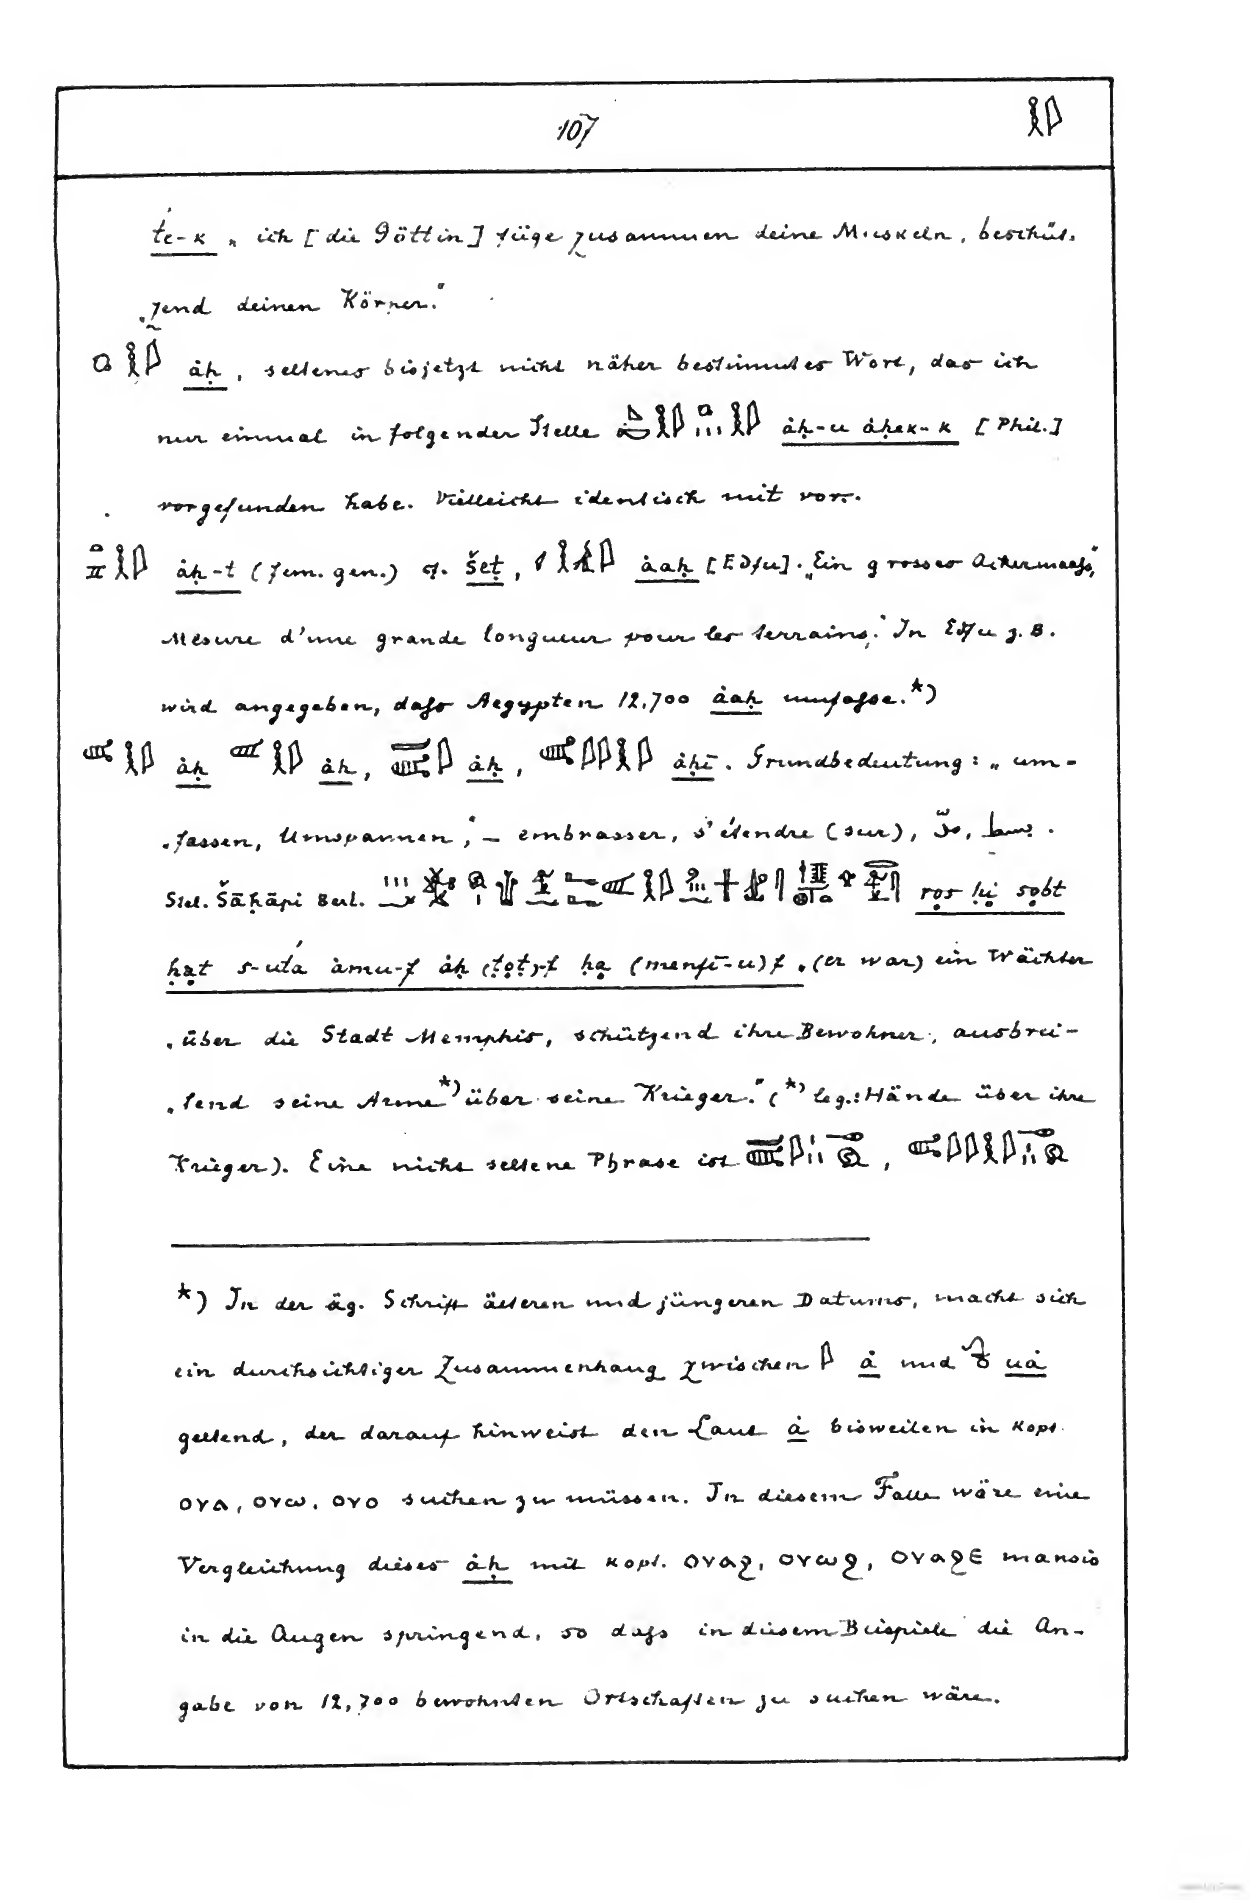 107 𓎛𓇋
ṫe-k „ ich [die Göttin] füge zusammen deine Muskeln, beschüt-
„zend deinen Körper."
ȧḥ, seltenes bisjetzt nicht näher bestimmtes Wort, das ich
nur einmal in folgender Stelle ȧḥ-u ȧḥek-k [Phil.]
vorgefunden habe. Vielleicht identisch mit vor.
ȧḥ-t (fem. gen.) cf. šeṭ, ȧaḥ [Edfu]. „Ein grosses Ackermaaß,"
Mesure d'une grande longueur pour les terrains." In Edfu z.B.
wird angegeben, daß Aegypten 12,700 ȧaḥ umfasse.*)
ȧḥ ȧḥ, ȧḥ, ȧḥī. Grundbedeutung: „um-
„fassen, Umspannen," – embrasser, s'étendre (sur),
Stel. Šāḥāpi Berl. ros ḥi sobt
ḥat s-uťa ȧmu-f ȧḥ (ṭoṭ)-f ḥa (menfī-u)f „(er war) ein Wächter
„über die Stadt Memphis, schützend ihre Bewohner, ausbrei-
„tend seine Arme*) über seine Krieger." (*) leg.: Hände über ihre
Krieger). Eine nicht seltene Phrase ist ,
*) In der äg. Schrift älteren und jüngeren Datums, macht sich
ein durchsichtiger Zusammenhang zwischen 𓇋 ȧ und uȧ
geltend, der darauf hinweist den Laut ȧ bisweilen in kopt.
ⲟⲩⲁ, ⲟⲩⲱ, ⲟⲩⲟ suchen zu müssen. In diesem Falle wäre eine
Vergleichung dieses ȧḥ mit kopt. ⲟⲩⲁϩ, ⲟⲩⲱϩ, ⲟⲩⲁϩⲉ mansio
in die Augen springend, so daß in diesem Beispiele die An-
gabe von 12,700 bewohnten Ortschaften zu suchen wäre.